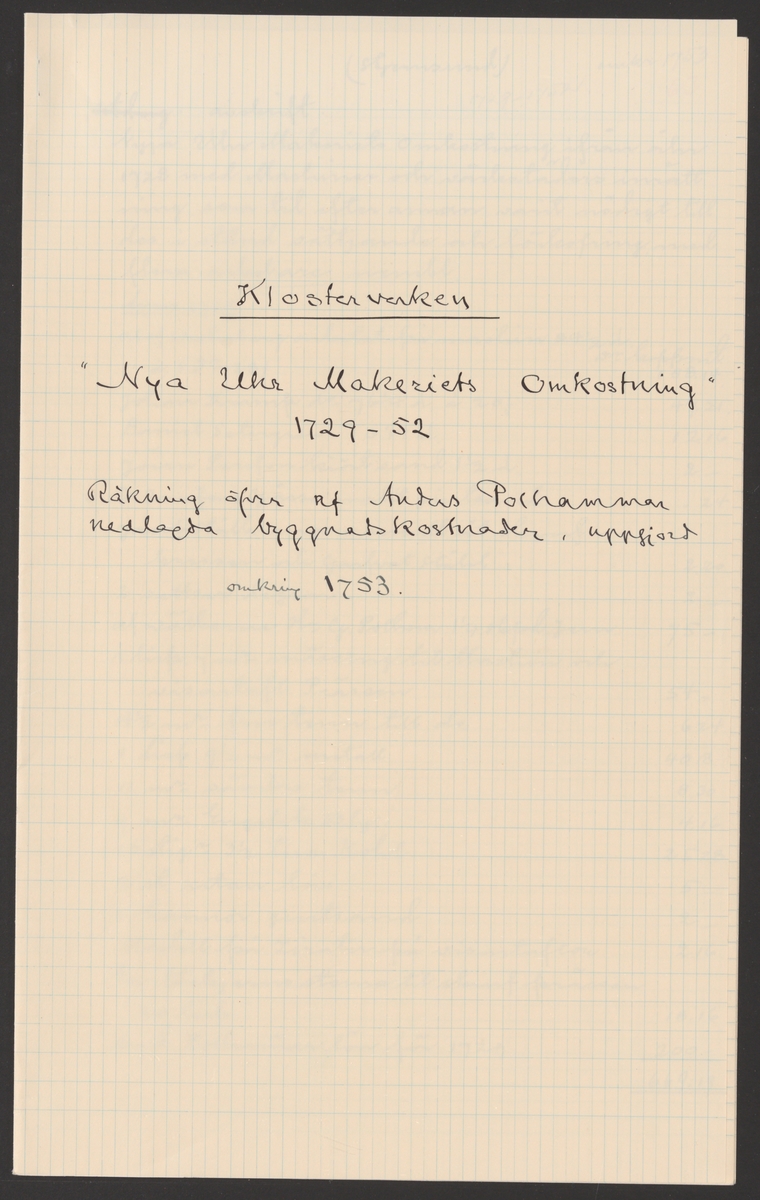 Klosterverken
"Nya Uhr Makeriets Omkostning"
1729-52
Räkning öfver af Anders Polhammar
nedlagda byggnadskostnader, uppgjord
omkring 1753.